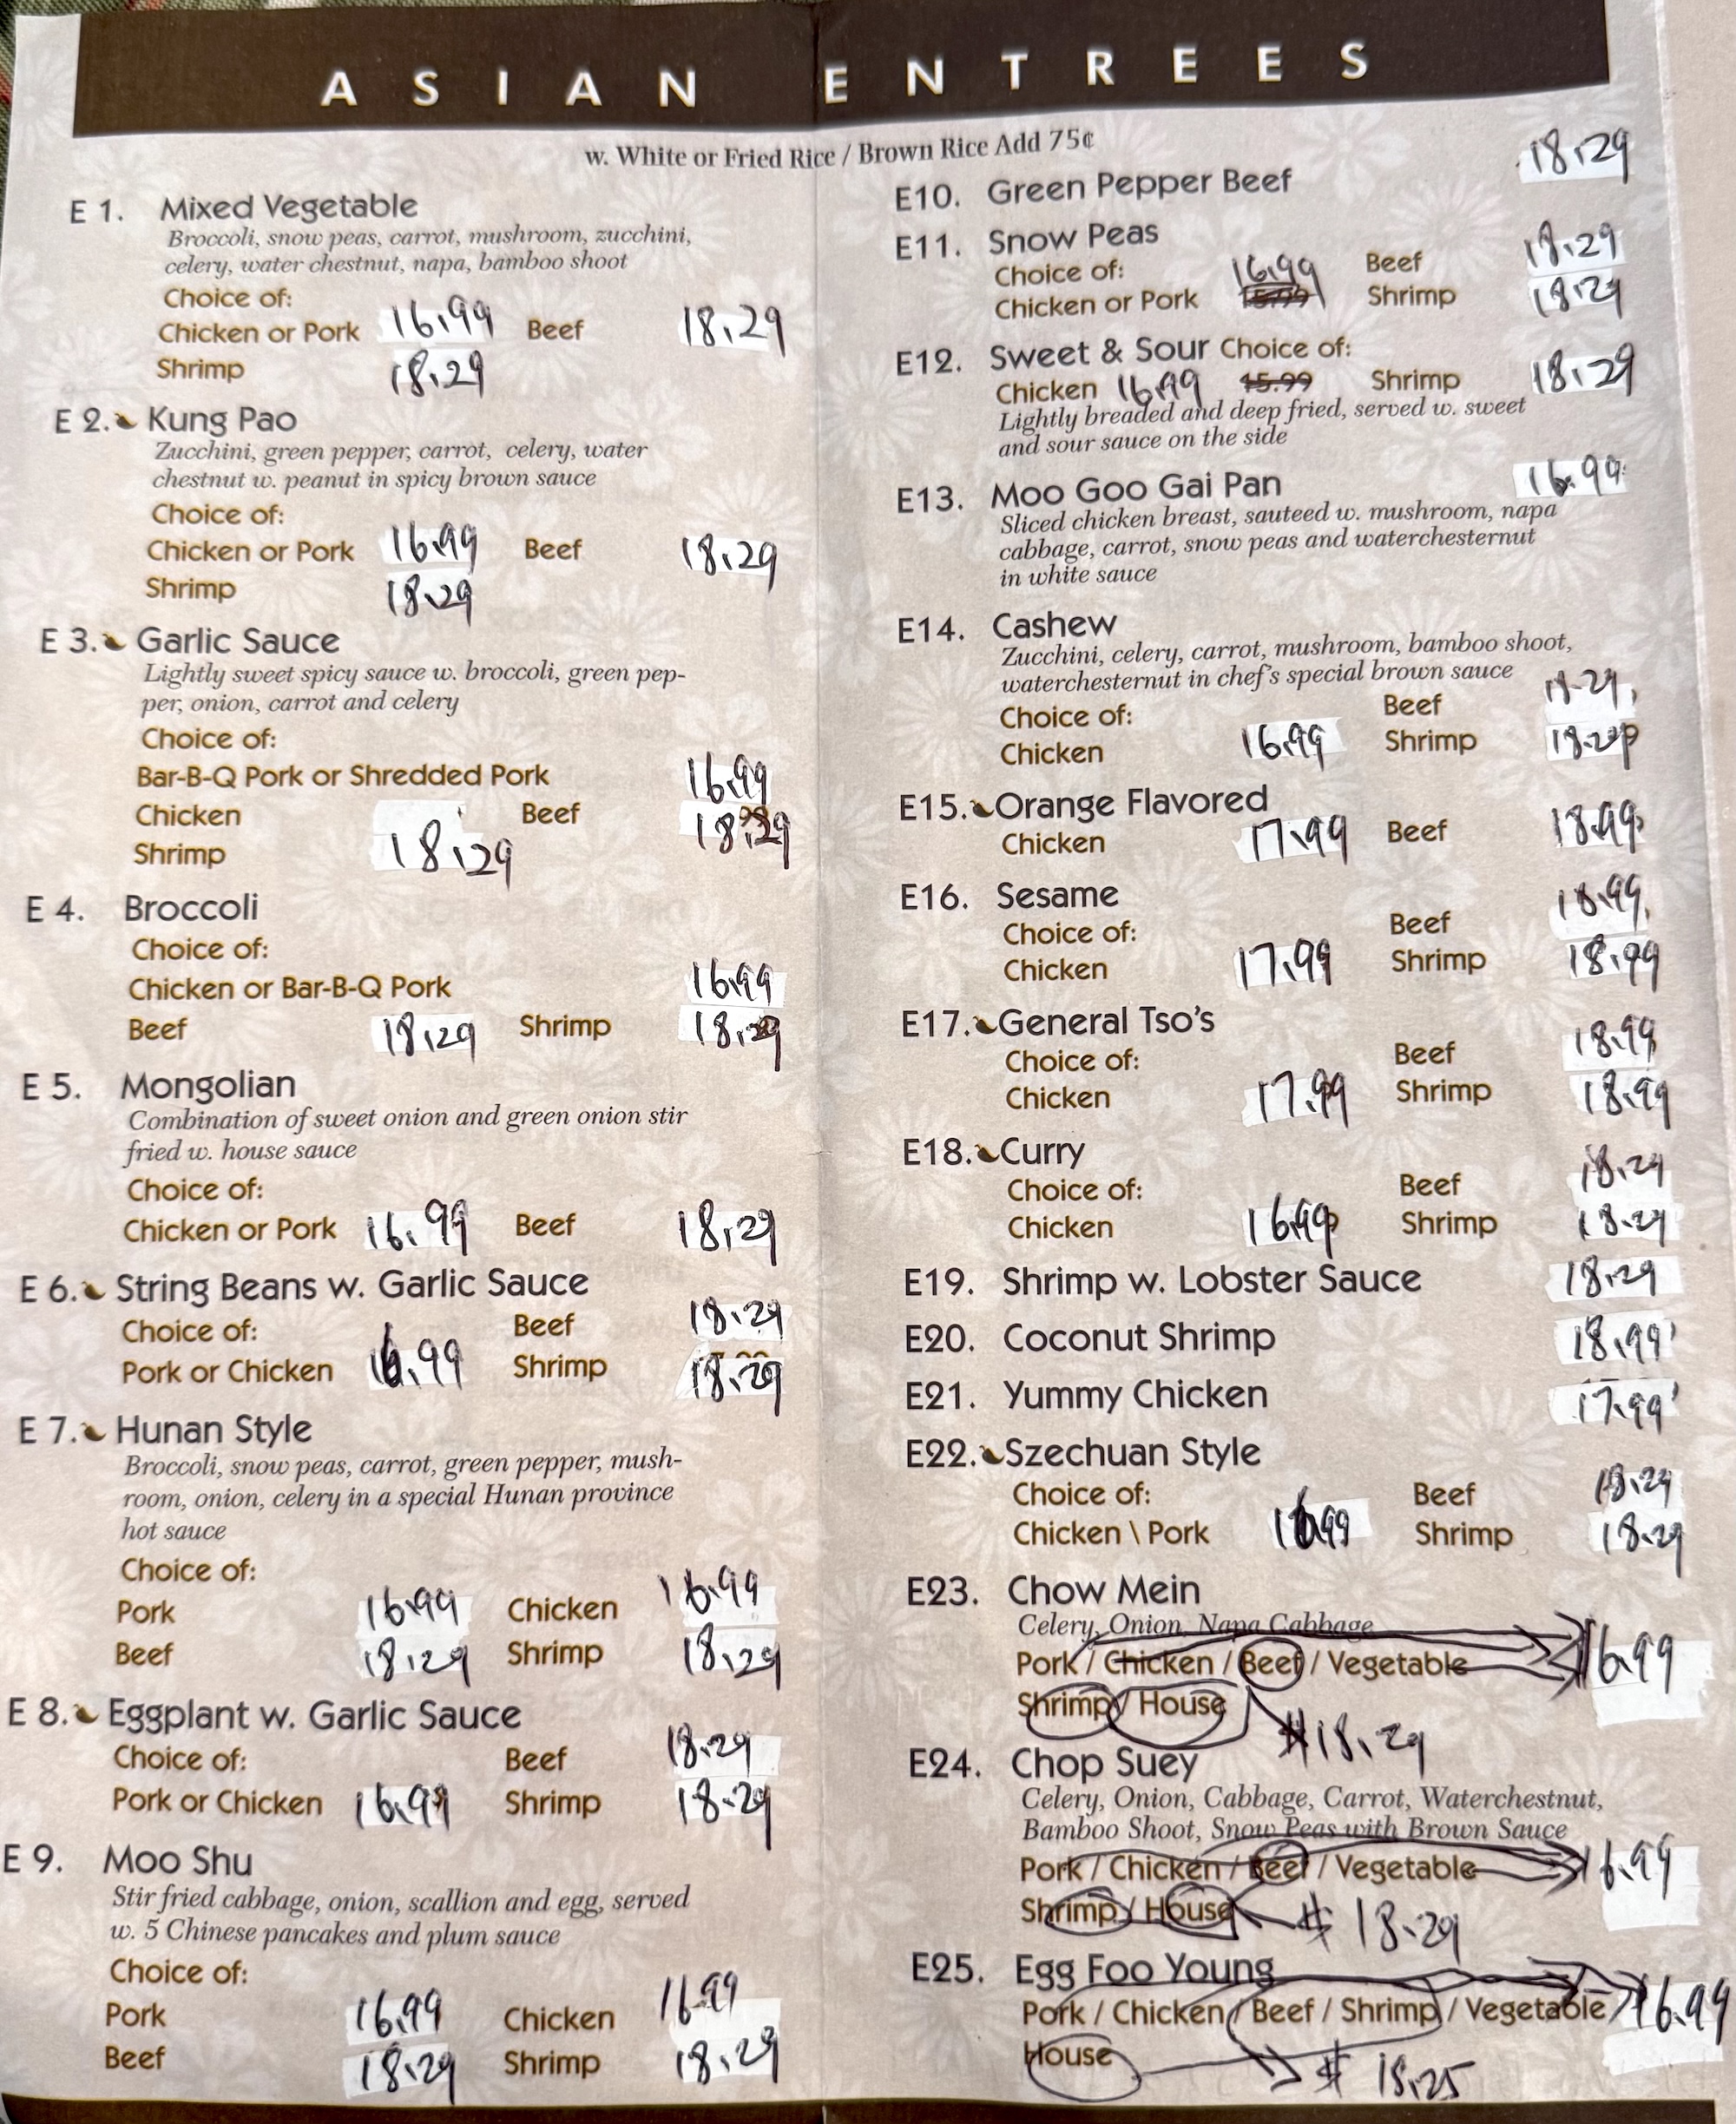 ASIAN ENTREES
w. White or Fried Rice / Brown Rice Add 75¢
E 1. Mixed Vegetable
Broccoli, snow peas, carrot, mushroom, zucchini,
celery, water chestnut, napa, bamboo shoot
Choice of:
Chicken or Pork 16.99 Beef 18.29
Shrimp 18.29
E 2. Kung Pao
Zucchini, green pepper, carrot, celery, water
chestnut w. peanut in spicy brown sauce
Choice of:
Chicken or Pork 16.99 Beef 18.29
Shrimp 18.29
E 3. Garlic Sauce
Lightly sweet spicy sauce w. broccoli, green pep-
per, onion, carrot and celery
Choice of:
Bar-B-Q Pork or Shredded Pork 16.99
Chicken Beef 18.29
Shrimp 18.29
E 4. Broccoli
Choice of:
Chicken or Bar-B-Q Pork 16.99
Beef 18.29 Shrimp 18.29
E 5. Mongolian
Combination of sweet onion and green onion stir
fried w. house sauce
Choice of:
Chicken or Pork 16.99 Beef 18.29
E 6. String Beans w. Garlic Sauce
Choice of: Beef 18.29
Pork or Chicken 16.99 Shrimp 18.29
E 7. Hunan Style
Broccoli, snow peas, carrot, green pepper, mush-
room, onion, celery in a special Hunan province
hot sauce
Choice of:
Pork 16.99 Chicken 16.99
Beef 18.29 Shrimp 18.29
E 8. Eggplant w. Garlic Sauce
Choice of: Beef 18.29
Pork or Chicken 16.99 Shrimp 18.29
E 9. Moo Shu
Stir fried cabbage, onion, scallion and egg, served
w. 5 Chinese pancakes and plum sauce
Choice of:
Pork 16.99 Chicken 16.99
Beef 18.29 Shrimp 18.29
E10. Green Pepper Beef 18.29
E11. Snow Peas
Choice of: 16.99 Beef 18.29
Chicken or Pork 15.99 Shrimp 18.29
E12. Sweet & Sour Choice of:
Chicken 16.99 15.99 Shrimp 18.29
Lightly breaded and deep fried, served w. sweet
and sour sauce on the side
E13. Moo Goo Gai Pan 16.99
Sliced chicken breast, sauteed w. mushroom, napa
cabbage, carrot, snow peas and waterchesternut
in white sauce
E14. Cashew
Zucchini, celery, carrot, mushroom, bamboo shoot,
waterchesternut in chef's special brown sauce
Choice of: Beef 18.29
Chicken 16.99 Shrimp 18.29
E15. Orange Flavored
Chicken 17.99 Beef 18.99
E16. Sesame
Choice of: Beef 18.99
Chicken 17.99 Shrimp 18.99
E17. General Tso's
Choice of: Beef 18.99
Chicken 17.99 Shrimp 18.99
E18. Curry
Choice of: Beef 18.29
Chicken 16.99 Shrimp 18.29
E19. Shrimp w. Lobster Sauce 18.29
E20. Coconut Shrimp 18.99
E21. Yummy Chicken 17.99
E22. Szechuan Style
Choice of: Beef 18.29
Chicken \ Pork 16.99 Shrimp 18.29
E23. Chow Mein
Celery, Onion, Napa Cabbage
Pork / Chicken / Beef / Vegetable 16.99
Shrimp / House $18.29
E24. Chop Suey
Celery, Onion, Cabbage, Carrot, Waterchestnut,
Bamboo Shoot, Snow Peas with Brown Sauce
Pork / Chicken / Beef / Vegetable 16.99
Shrimp / House $ 18.29
E25. Egg Foo Young
Pork / Chicken / Beef / Shrimp / Vegetable 16.99
House $ 18.25